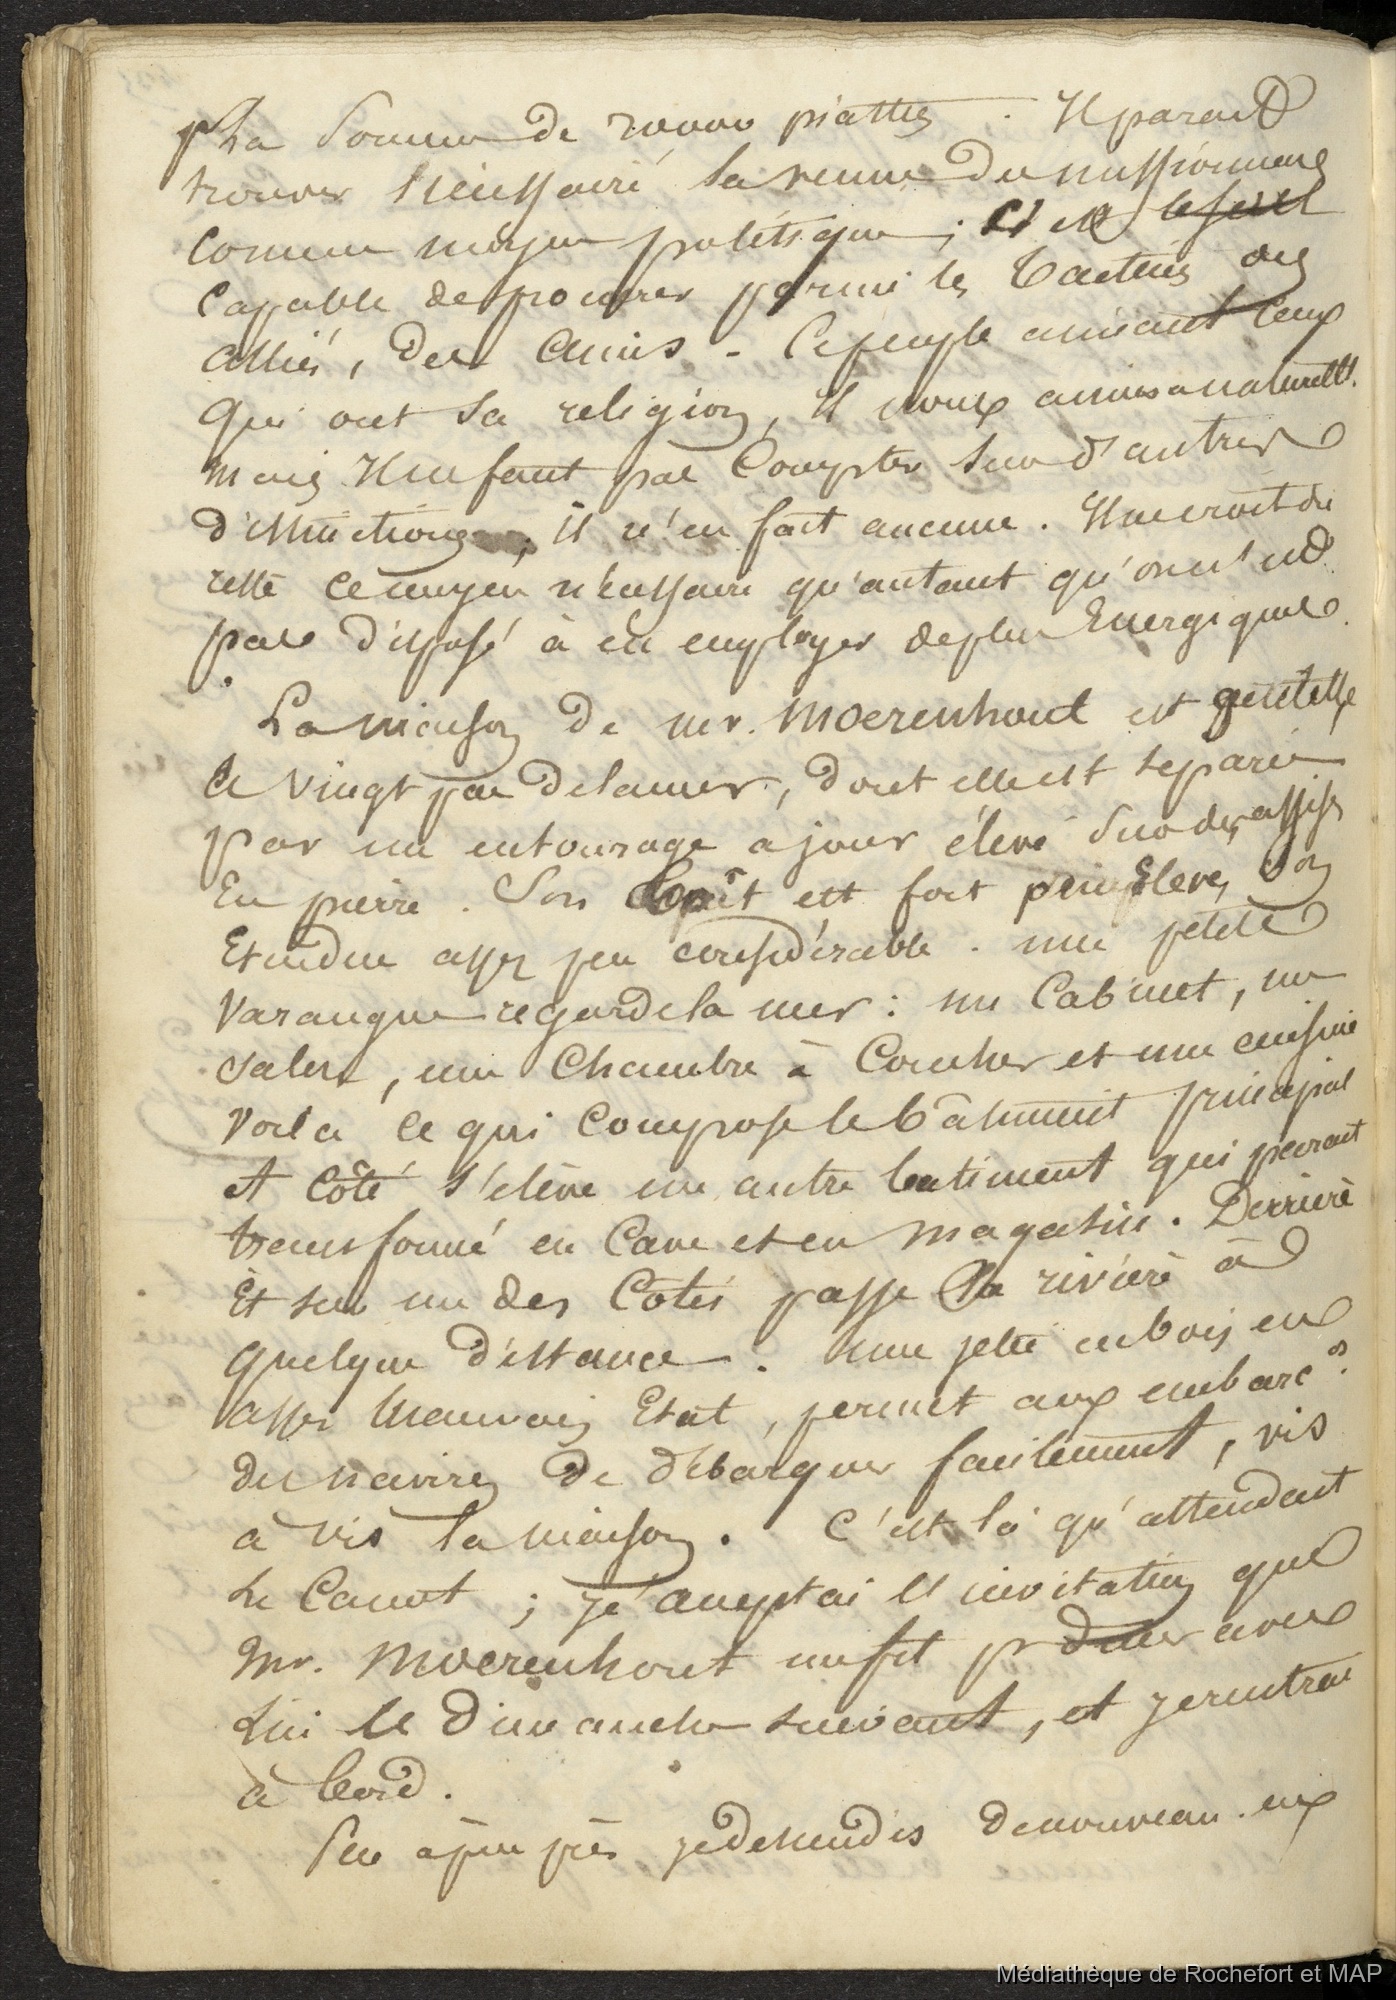 pr la somme de 20000 piastres. Il parait
trouver nécessaire la venue de missionnaire
comme moyen politique ; il est le seul
capable de procurer parmi les Taïtiens des
alliés, des amis. Ce peuple aimant ceux
qui ont sa religion, il nous aimera naturellt.
mais il ne faut pas compter sur d'autres
d'instructions ; il n'en fait aucune. Il ne croit du
reste ce moyen nécessaire qu'autant qu'on n'est
pas disposé à en employer de plus énergiques.
La maison de mr. Moerenhout est gentille
à vingt pas de la mer, dont elle est séparée
par un entourage à jour élevé sur des assises
en pierre. Son toit est fort peu élevé, son
étendue assez peu considérable. une petite
varangue regarde la mer : un cabinet, un
salon, une chambre à coucher et une cuisine
voilà ce qui compose le bâtiment principal
et côté s'élève un autre batiment qui
transformé en cave et en magasin. Derrière
et sur un des côtés passe la rivière à
quelque distance. une jetée en bois en
assez mauvais état, permet aux embarc.ns
des navires de débarquer facilement, vis
à vis la maison. C'est là qu'attendant
le canot ; j'acceptai l'invitation que
Mr. Moerenhout me fit pr diner avec
lui le dimanche suivant, et je rentrai
à bord.
Peu à peu près je descendis de nouveau en
Médiathèque de Rochefort et MAP